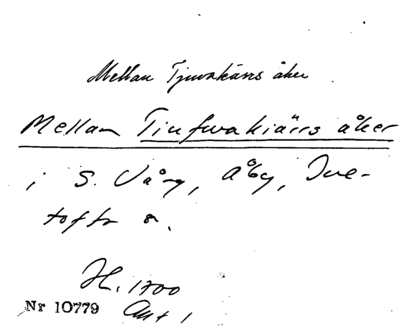 Mellan Tjuvakärrs åker
Mellan Tiufwakiärrs åker
i S. Vång, Åby, Ive-
tofta s.
H. 1700
Nr 10779 Akt 1